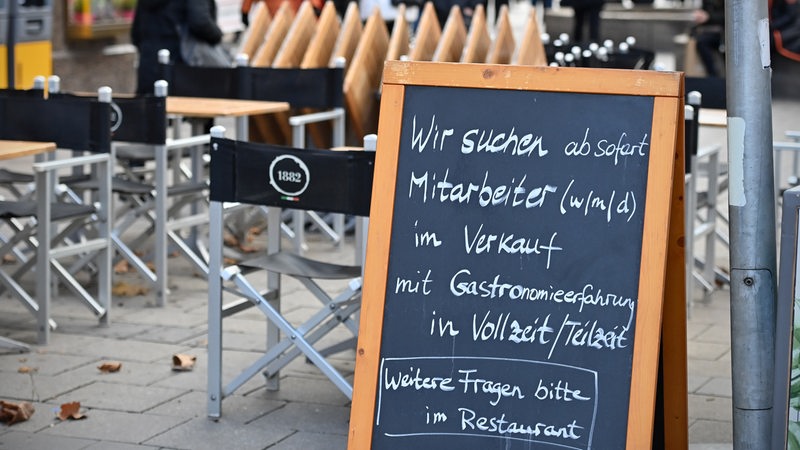 1882
Wir suchen ab sofort
Mitarbeiter (w/m/d)
im Verkauf
mit Gastronomieerfahrung
in Vollzeit/Teilzeit
Weitere Fragen bitte
im Restaurant